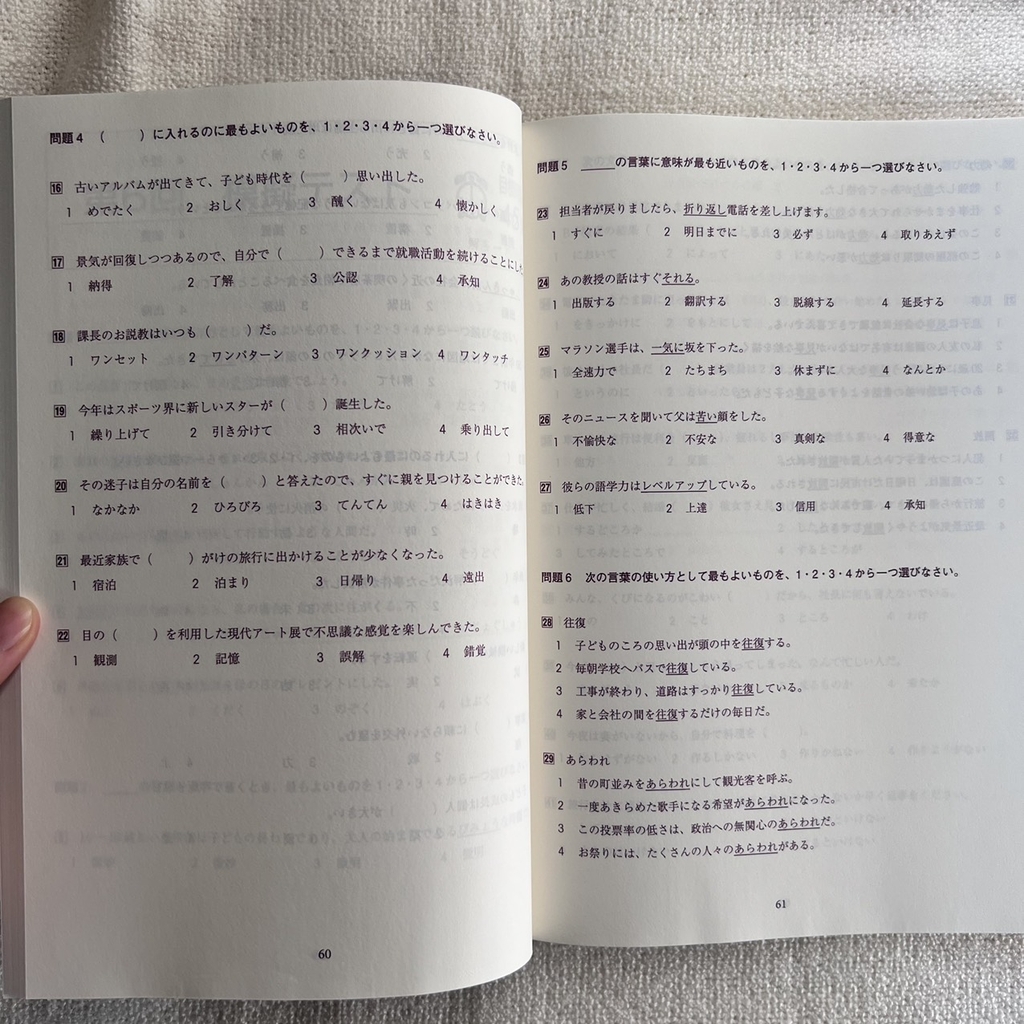 問題4 (　　)に入れるのに最もよいものを、1・2・3・4から一つ選びなさい。
16 古いアルバムが出てきて、子ども時代を(　　)思い出した。
1 めでたく 2 おしく 3 醜く 4 懐かしく
17 景気が回復しつつあるので、自分で(　　)できるまで就職活動を続けることにし
1 納得 2 了解 3 公認 4 承知
18 課長のお説教はいつも(　　)だ。
1 ワンセット 2 ワンパターン 3 ワンクッション 4 ワンタッチ
19 今年はスポーツ界に新しいスターが(　　)誕生した。
1 繰り上げて 2 引き分けて 3 相次いで 4 乗り出して
20 その迷子は自分の名前を(　　)と答えたので、すぐに親を見つけることができた
1 なかなか 2 ひろびろ 3 てんてん 4 はきはき
21 最近家族で(　　)がけの旅行に出かけることが少なくなった。
1 宿泊 2 泊まり 3 日帰り 4 遠出
22 目の(　　)を利用した現代アート展で不思議な感覚を楽しんできた。
1 観測 2 記憶 3 誤解 4 錯覚
60
問題5 ＿＿＿の言葉に意味が最も近いものを、1・2・3・4から一つ選びなさい。
23 担当者が戻りましたら、折り返し電話を差し上げます。
1 すぐに 2 明日までに 3 必ず 4 取りあえず
24 あの教授の話はすぐそれる。
1 出版する 2 翻訳する 3 脱線する 4 延長する
25 マラソン選手は、一気に坂を下った。
1 全速力で 2 たちまち 3 休まずに 4 なんとか
26 そのニュースを聞いて父は苦い顔をした。
1 不愉快な 2 不安な 3 真剣な 4 得意な
27 彼らの語学力はレベルアップしている。
1 低下 2 上達 3 信用 4 承知
問題6 次の言葉の使い方として最もよいものを、1・2・3・4から一つ選びなさい。
28 往復
1 子どものころの思い出が頭の中を往復する。
2 毎朝学校へバスで往復している。
3 工事が終わり、道路はすっかり往復している。
4 家と会社の間を往復するだけの毎日だ。
29 あらわれ
1 昔の町並みをあらわれにして観光客を呼ぶ。
2 一度あきらめた歌手になる希望があらわれになった。
3 この投票率の低さは、政治への無関心のあらわれだ。
4 お祭りには、たくさんの人々のあらわれがある。
61